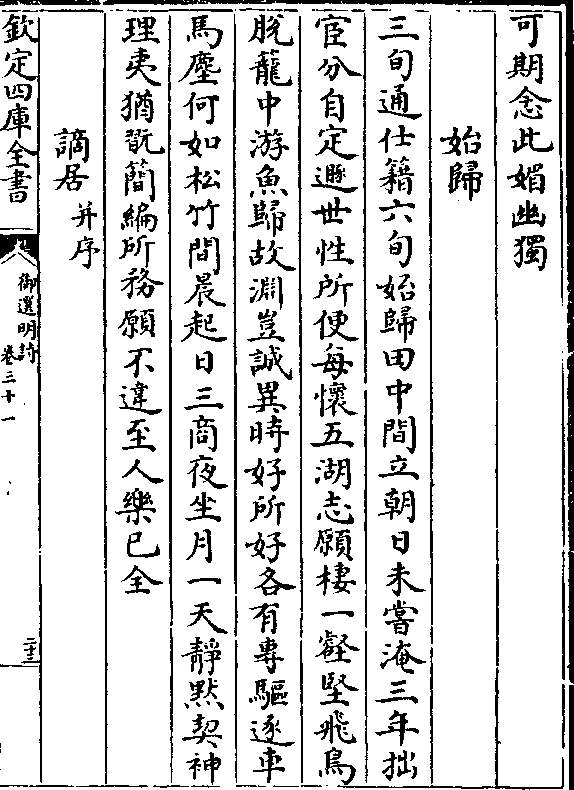 可期念此媚幽獨
始歸
三旬通仕籍六旬始歸田中間立朝日未嘗淹三年拙
宦分自定遯世性所便每懷五湖志願棲一壑堅飛鳥
脫蘢中游魚歸故淵豈誠異時好所好各有專驅逐車
馬塵何如松竹間晨起日三商夜坐月一天靜默契神
理夷猶翫簡編所務願不違至人樂已全
謫居并序
欽定四庫全書
御選明詩
卷三十一
二十三